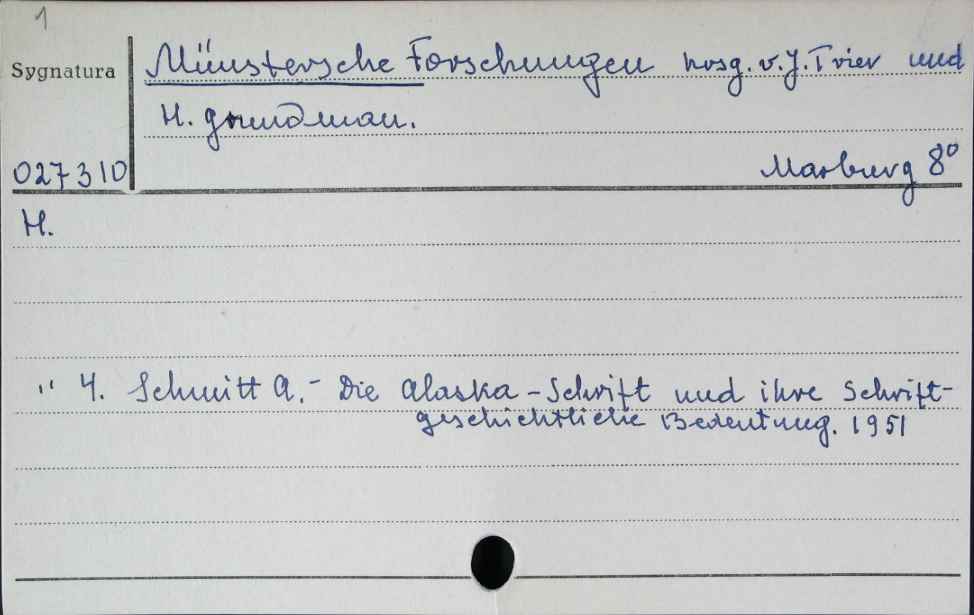 1
Sygnatura
Münstersche Forschungen hrsg. v. J. Trier und
H. Grundman.
027310
Marburg 8°
H.
" 4. Schmitt A. - Die Alaska-Schrift und ihre Schrift-
geschichtliche Bedeutung. 1951